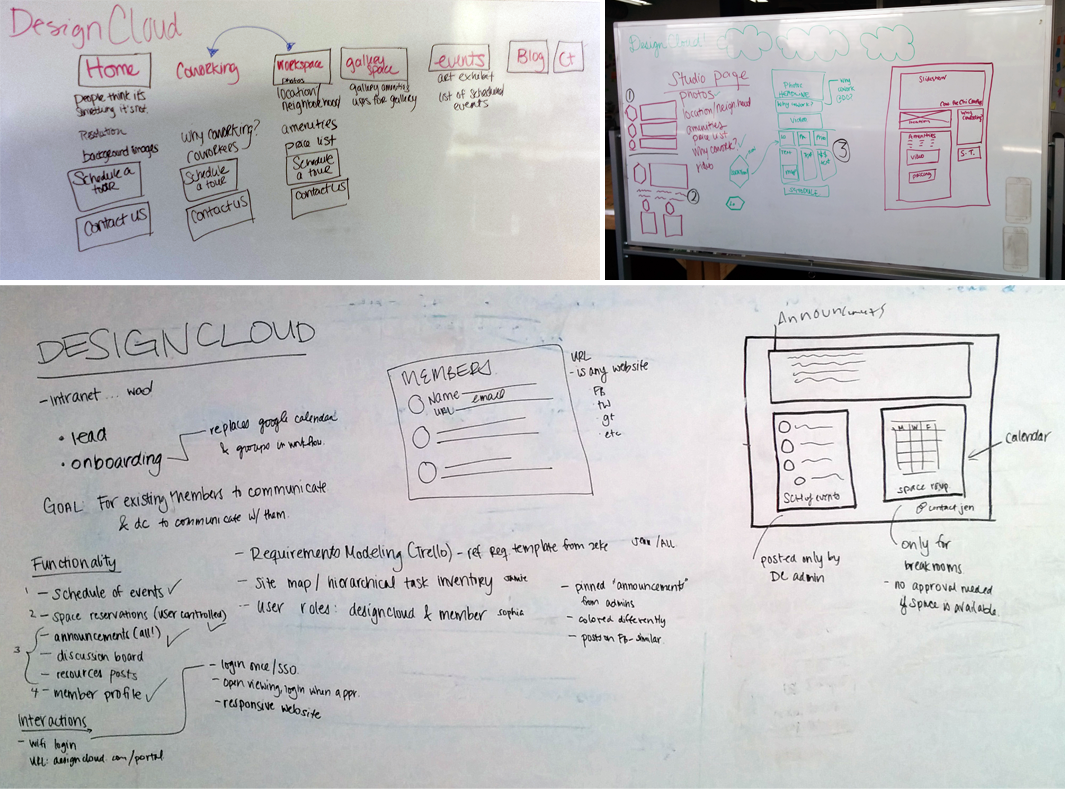 Design Cloud
Home
People think it's
something it's not.
Resolution
background images
Schedule a
tour
Contact US
Coworking
Why coworking?
coworkers
Schedule
a tour
Contact US
Workspace
photos
location/
neighborhood
amenities
pace list
Schedule
a tour
Contact US
gallery
space
gallery amenities
uses for gallery
events
art exhibit
list of scheduled
events
Blog
Ct
Design Cloud!
Studio page
photos
location/neighborhood
amenities
pace list
Why cowork?
video
1
2
3
Why cowork?
video
Slideshow
Amenities
video
parking
S.T.
DESIGN CLOUD
- intranet ... wad
• lead
• onboarding
- replaces google calendar
& groups in workflow.
GOAL: For existing members to communicate
& dc to communicate w/ them.
MEMBERS
Name
email
URL
URL
- is any website
FB
tw
gt
etc
Announcements
Sch of events
M W F
space rsvp
calendar
contact jen
posted only by
DC admin
only for
break rooms.
- no approval needed
if space is available.
Functionality
1 - schedule of events ✓
2 - space reservations (user controlled) ✓
3 - announcements (all!) ✓
- discussion board
- resources posts
4 - member profile ✓
Interactions
- wifi login
URL: designcloud.com/portal
- login once/SSO.
- open viewing, login when appr.
- responsive website
- Requirements Modeling (Trello) - ref Req template from zeke
- Site map / hierarchical task inventory
- User roles: designcloud & member sophia
- pinned "announcements"
from admins
- colored differently
- posts on FB-similar.